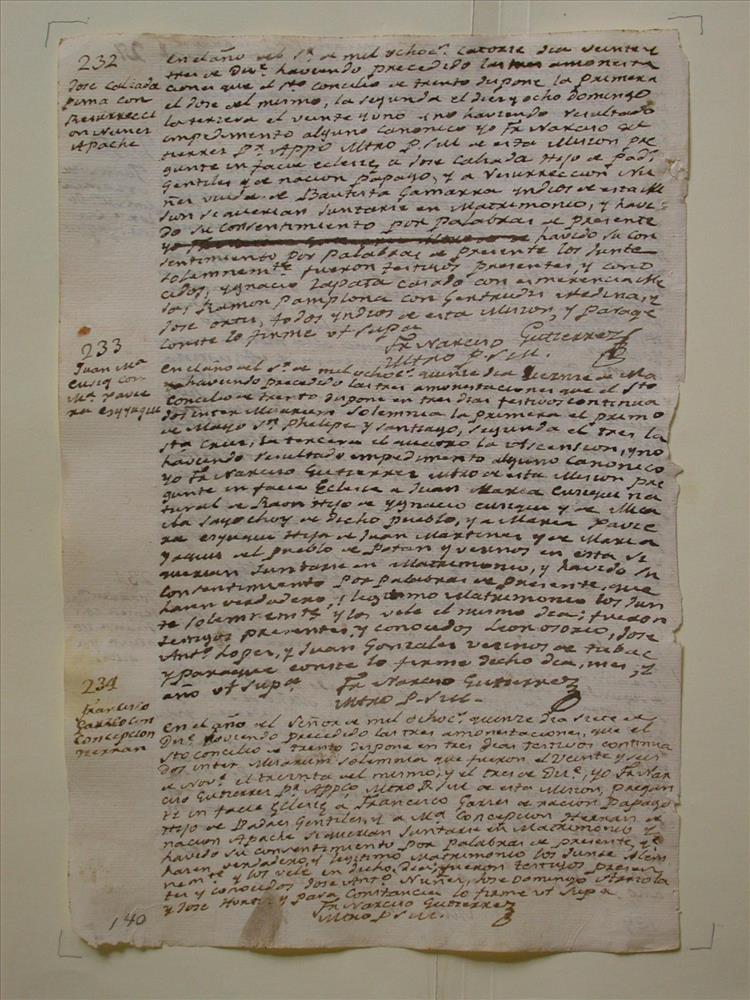 232
Jose Calzada
Pima con
Resurrecci
on Nuñes
Apache
En el año del Sr. de mil ochoc.s catorse dia veinte y
tres de Dic.e haviendo precedido las tres amonesta
ciones que el Sto concilio de trento dispone la primera
el dose del mismo, la segunda el diez y ocho Domingo
la tercera el veinte y uno y no haviendo resultado
impedimento alguno canonico yo Fr. Narciso Gu
tierres Pr. Appco Mtro P. S. M. de esta Mision pre
gunte in facie eclesie, a Jose Calzada Hijo de Pad.s
Gentiles y de nacion Papago, y a Resurreccion Nu
ñes viuda de Bautista Gamarra yndios de esta Mi
sion si querian Juntarse en Matrimonio, y havi
do su consentimiento por palabras de presente
havido su con
sentimiento por Palabras de presente los Junte
solemnem.te fueron testigos presentes, y cono
cidos, Ygnacio Zapata casado con esmerencia Me
sa, Ramon Pamplona con Gertrudis Medina, y
Jose ortis, todos yndios de esta Mision, y paraqe
conste lo firme ut supa
Fr Narciso Gutierrez
Mtro P. S. M.
233
Juan Ma
cusiq con
Ma. Xavie
ra esyuque
En el año del Sr. de mil ochoc.s quinze dia de Ma
haviendo precedido las tres amonestaciones que el Sto
Concilio de trento dispone en tres dias festivos continua
dos inter Misarum Solemnia la primera el primo
de Mayo Sn Phelipe y santiago, segunda el tres la
Sta Cruz, la tercera el quatro la Ascension, y no
haviendo resultado impedimento alguno canonico
yo Fr. Narciso Gutierrez Mtro de esta Mision pre
gunte in facie Eclesie a Juan Maria Cusique na
tural de Raon Hijo de Ygnacio cusique y de Mica
ela de dicho pueblo, y a Maria Xavie
ra esyuque Hija de Juan Martines y de Maria
Yaquis del pueblo de Potan y vezinos en esta si
querian Juntarse en Matrimonio, y havido su
consentimiento por palabras de presente, que
hazen verdadero, y legitimo Matrimonio los Jun
te solemnemte y los vele el mismo dia; fueron
testigos presentes, y conocidos Leon osorio, Jose
Anto. Lopes, y Juan Gonzales vecinos de tubac
y paraque conste lo firme dicho dia, mes, y
año ut supa
Fr Narciso Gutierrez
Mtro P. S. M.
234
Francisco
Garres con
Concepcion
Hernan
En el año del Señor de mil ochoc.s quinze dia siete de
Dic.e haviendo precedido las tres amonestaciones, que el
Sto concilio de trento dispone en tres dias festivos continua
dos inter Misarum solemnia que fueron el veinte y seis
de Nov.e el treinta del mismo, y el tres de Dic.e, yo Fr. Nar
ciso Gutierrez Pr. Appco Mtro P. S. M. de esta Mision, pregun
te in facie Eclesie a Francisco Garres de nacion Papago
Hijo de Padres Gentiles, y a Ma. Concepcion Hernan de
nacion Apache si querian Juntarse en Matrimonio, y
havido su consentimiento por Palabras de presente, qe
hazen verdadero, y legitimo Matrimonio los Junte solem
nemte y los vele en dicho dia; fueron testigos presen
tes y conocidos Jose Anto. Nuñes, Jose Domingo Arriola
y Jose y para Constancia lo firme ut supa
Fr Narciso Gutierrez
Mtro P. S. M.
140